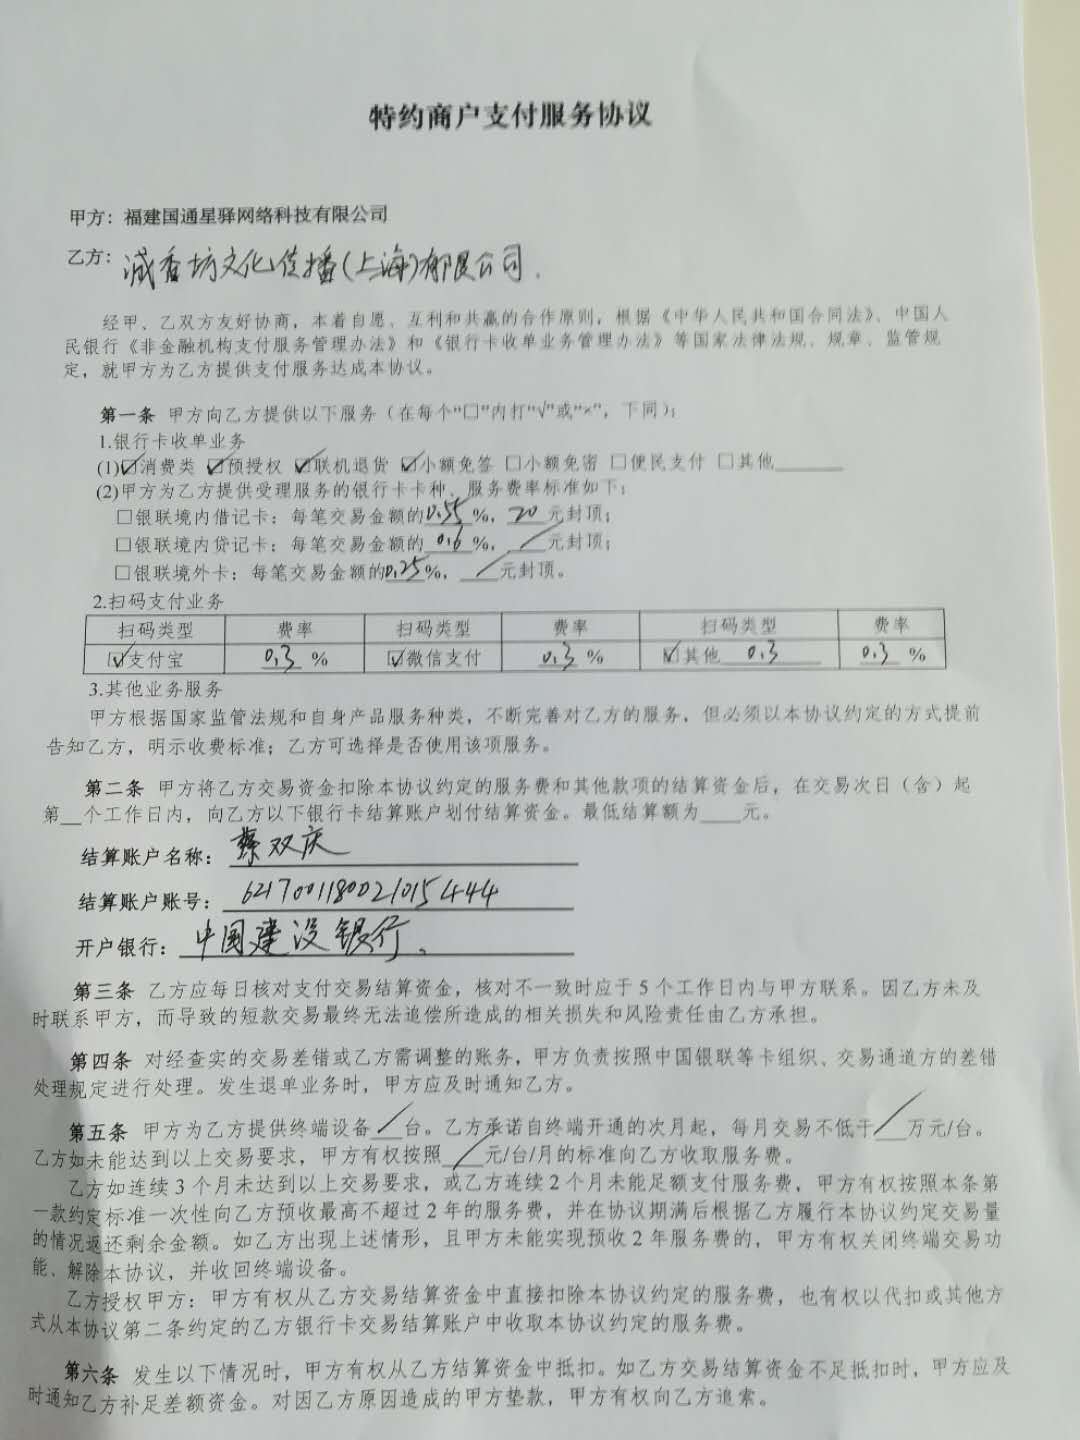 特约商户支付服务协议
甲方：福建国通星驿网络科技有限公司
乙方：减香坊文化传播(上海)有限公司.
经甲、乙双方友好协商，本着自愿、互利和共赢的合作原则，根据《中华人民共和国合同法》、中国人
民银行《非金融机构支付服务管理办法》和《银行卡收单业务管理办法》等国家法律法规、规章、监管规
定，就甲方为乙方提供支付服务达成本协议。
第一条 甲方向乙方提供以下服务（在每个“□”内打“√”或“×”，下同）：
1.银行卡收单业务
(1)☑消费类 ☑预授权 ☑联机退货 ☑小额免签 □小额免密 □便民支付 □其他______
(2)甲方为乙方提供受理服务的银行卡卡种、服务费率标准如下：
□银联境内借记卡：每笔交易金额的0.55%，20元封顶；
□银联境内贷记卡：每笔交易金额的0.6%，/元封顶；
□银联境外卡：每笔交易金额的0.25%，/元封顶。
2.扫码支付业务
扫码类型 费率 扫码类型 费率 扫码类型 费率
☑支付宝 0.3% ☑微信支付 0.3% ☑其他 0.3 0.3%
3.其他业务服务
甲方根据国家监管法规和自身产品服务种类，不断完善对乙方的服务，但必须以本协议约定的方式提前
告知乙方，明示收费标准；乙方可选择是否使用该项服务。
第二条 甲方将乙方交易资金扣除本协议约定的服务费和其他款项的结算资金后，在交易次日（含）起
第__个工作日内，向乙方以下银行卡结算账户划付结算资金。最低结算额为____元。
结算账户名称：蔡双庆
结算账户账号：6217001180021015444
开户银行：中国建设银行、
第三条 乙方应每日核对支付交易结算资金，核对不一致时应于 5 个工作日内与甲方联系。因乙方未及
时联系甲方，而导致的短款交易最终无法追偿所造成的相关损失和风险责任由乙方承担。
第四条 对经查实的交易差错或乙方需调整的账务，甲方负责按照中国银联等卡组织、交易通道方的差错
处理规定进行处理。发生退单业务时，甲方应及时通知乙方。
第五条 甲方为乙方提供终端设备/台。乙方承诺自终端开通的次月起，每月交易不低于/万元/台。
乙方如未能达到以上交易要求，甲方有权按照/元/台/月的标准向乙方收取服务费。
乙方如连续 3 个月未达到以上交易要求，或乙方连续 2 个月未能足额支付服务费，甲方有权按照本条第
一款约定标准一次性向乙方预收最高不超过 2 年的服务费，并在协议期满后根据乙方履行本协议约定交易量
的情况返还剩余金额。如乙方出现上述情形，且甲方未能实现预收 2 年服务费的，甲方有权关闭终端交易功
能、解除本协议，并收回终端设备。
乙方授权甲方：甲方有权从乙方交易结算资金中直接扣除本协议约定的服务费，也有权以代扣或其他方
式从本协议第二条约定的乙方银行卡交易结算账户中收取本协议约定的服务费。
第六条 发生以下情况时，甲方有权从乙方结算资金中抵扣。如乙方交易结算资金不足抵扣时，甲方应及
时通知乙方补足差额资金。对因乙方原因造成的甲方垫款，甲方有权向乙方追索。